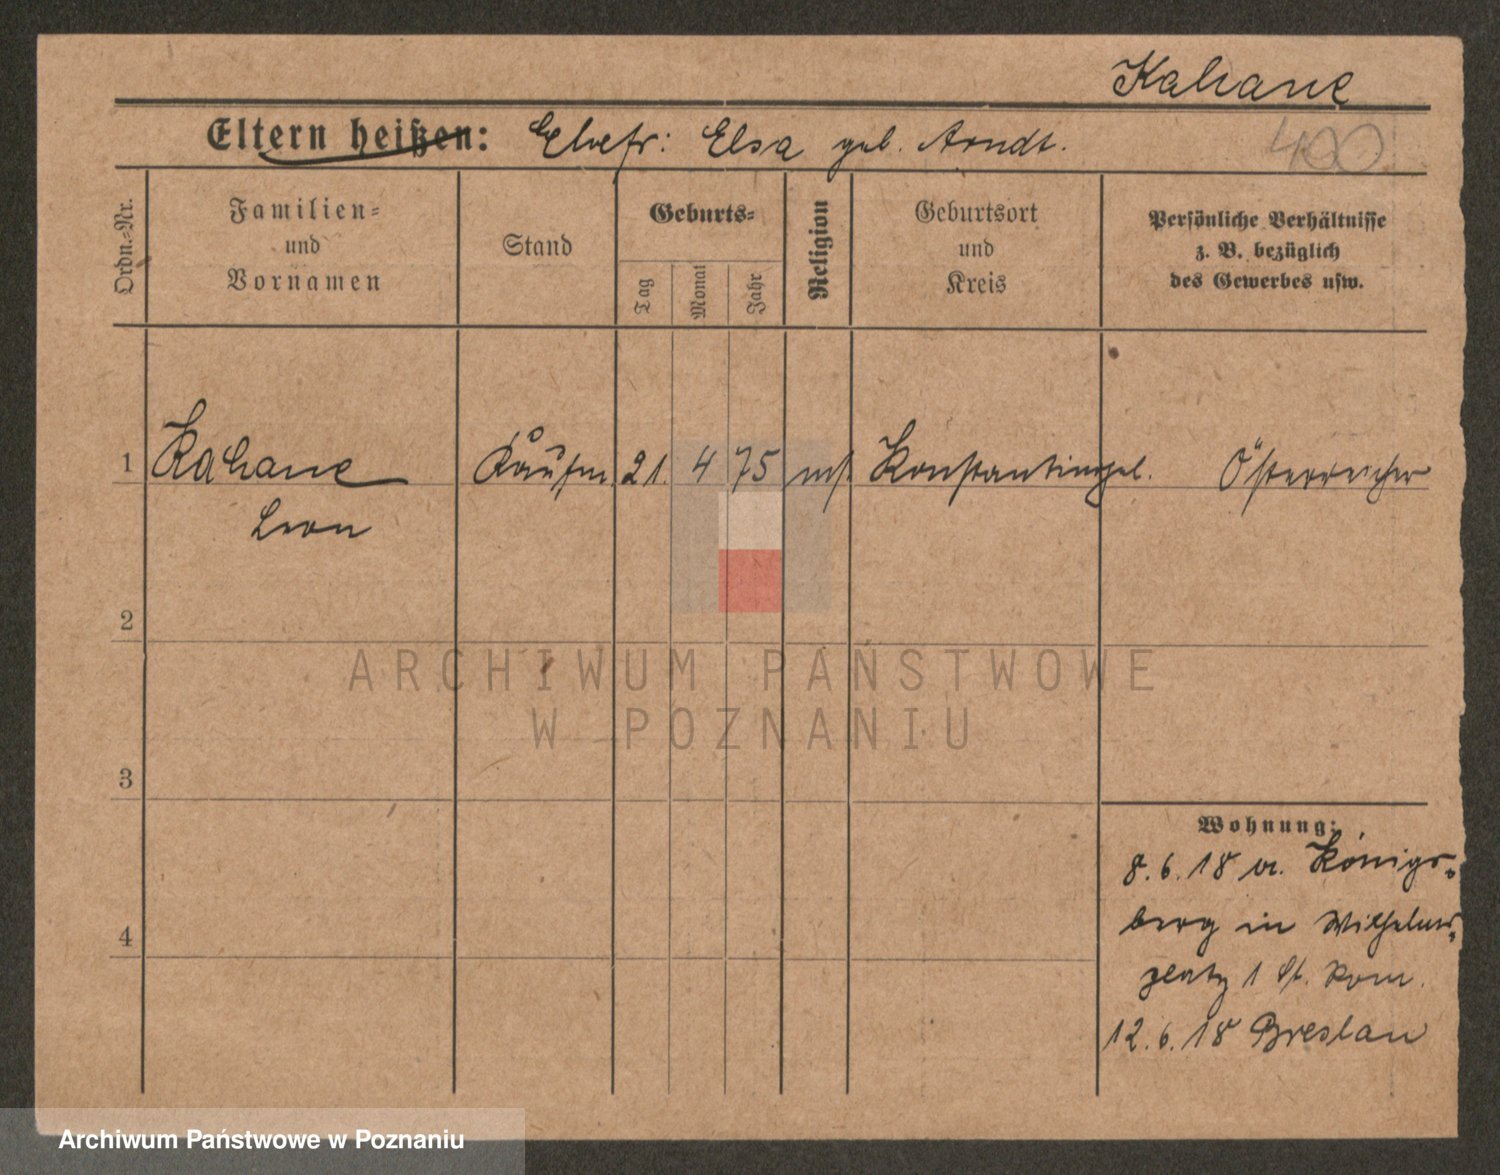 Kahane
Eltern heißen: Ehefr: Elsa geb. Arndt.
400
Ordn.-Nr.
Familien-
und
Vornamen
Stand
Geburts-
Tag
Monat
Jahr
Religion
Geburtsort
und
Kreis
Persönliche Verhältnisse
z. B. bezüglich
des Gewerbes usw.
1 Kahane Kaufm. 21. 4 75 mos. Konstantinopel. Österreicher
Leon
2
ARCHIWUM PAŃSTWOWE
W POZNANIU
3
Wohnung:
8.6.18 v. Königs-
berg in Wilhelms-
platz 1 St. Rom.
4
12.6.18 Breslau
Archiwum Państwowe w Poznaniu